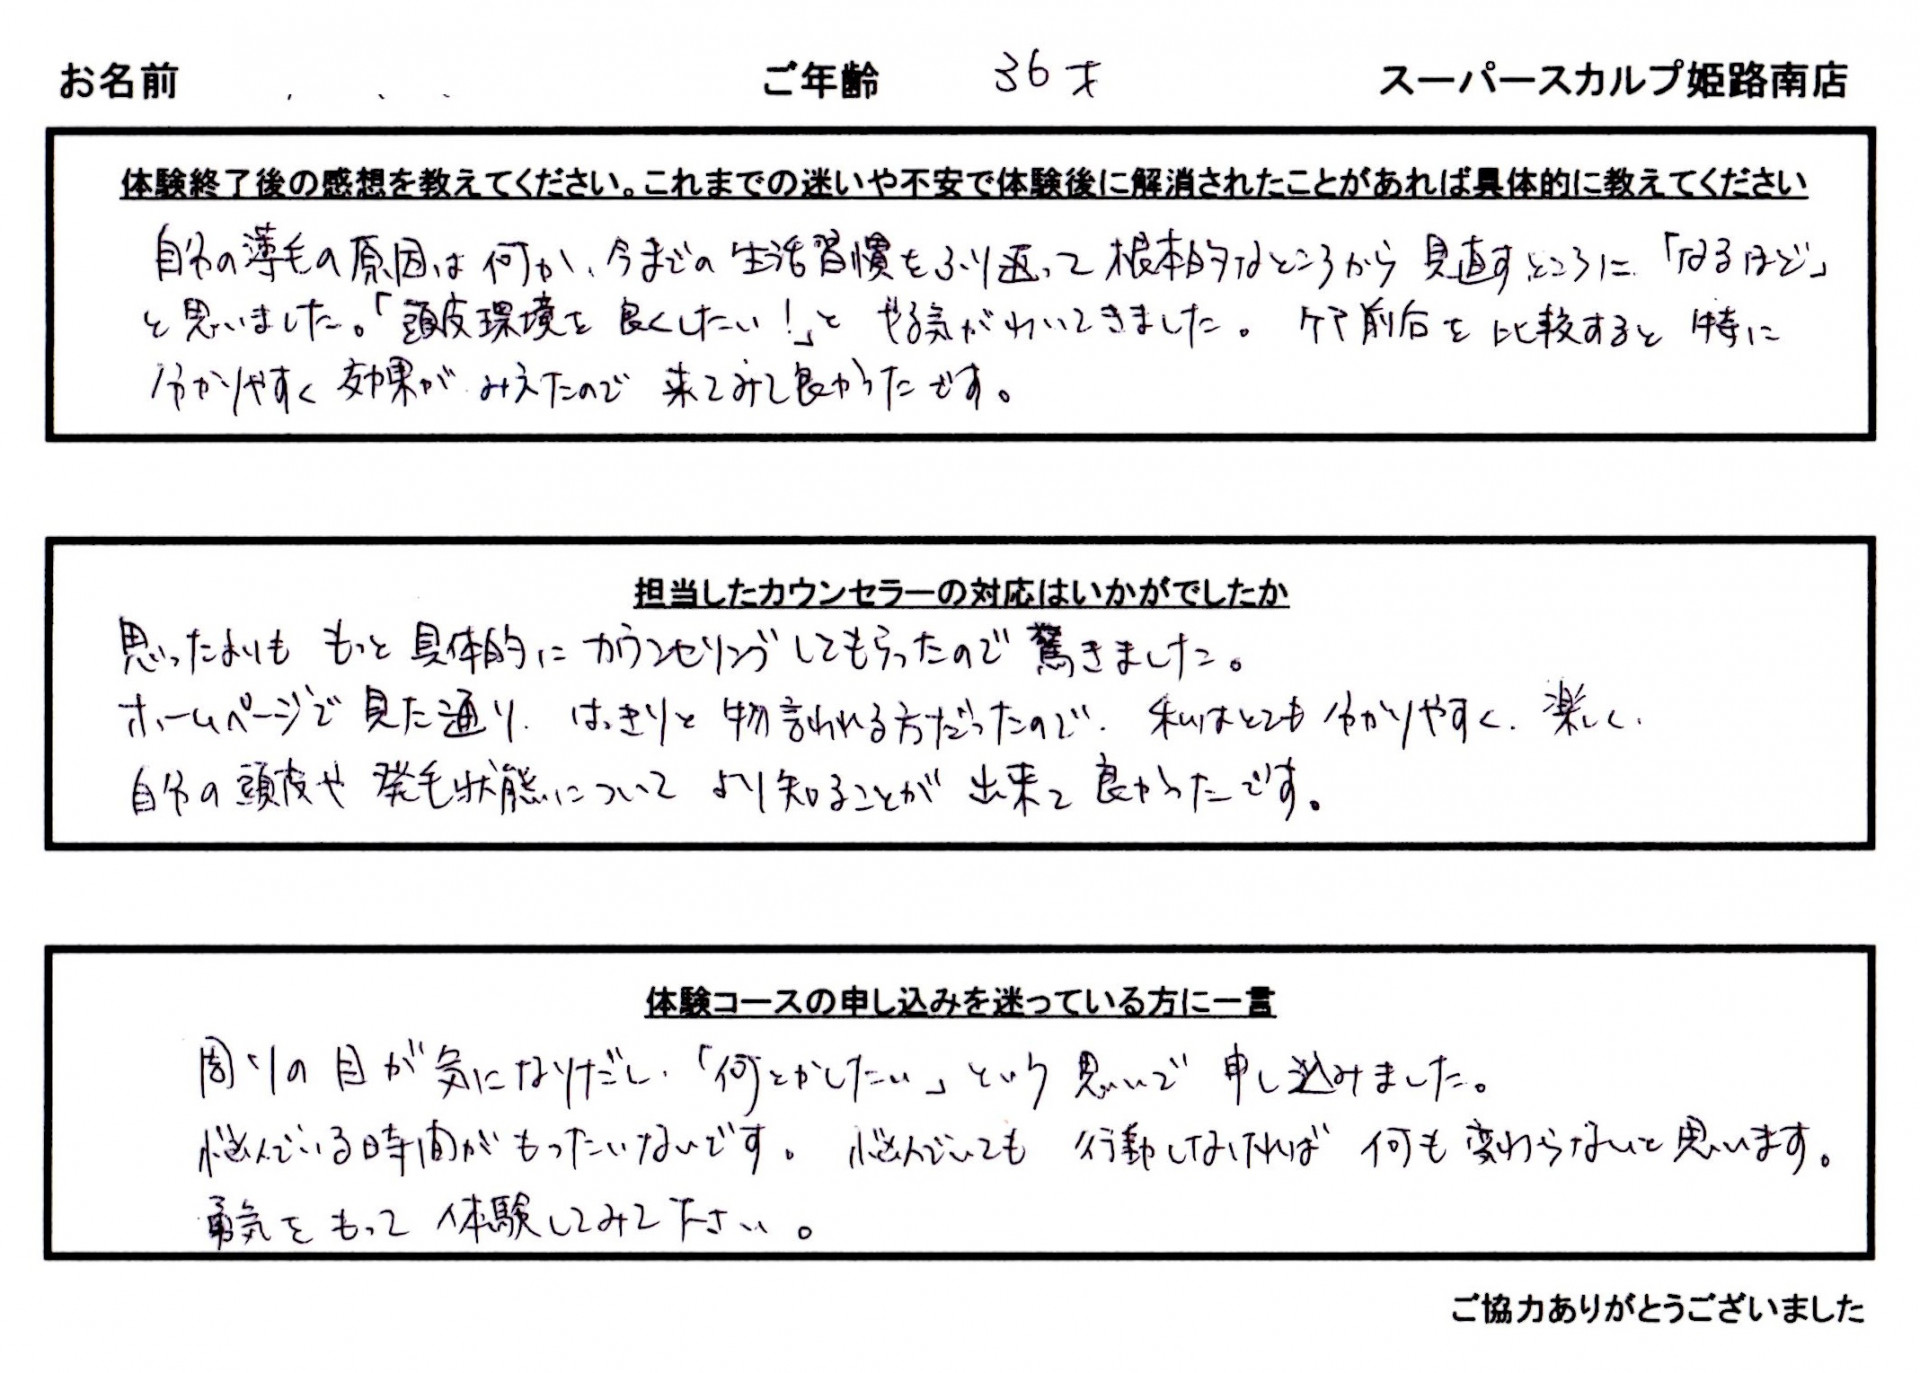 お名前 ご年齢 36才 スーパースカルプ姫路南店
体験終了後の感想を教えてください。これまでの迷いや不安で体験後に解消されたことがあれば具体的に教えてください
自分の薄毛の原因は何か、今までの生活習慣をふり返って根本的なところから見直すところに「なるほど」
と思いました。「頭皮環境を良くしたい！」とやる気がわいてきました。ケア前后を比較すると特に
分かりやすく効果がみえたので来てみて良かったです。
担当したカウンセラーの対応はいかがでしたか
思ったよりももっと具体的にカウンセリングしてもらったので驚きました。
ホームページで見た通り、はっきりと物言われる方だったので、私はとても分かりやすく、楽しく、
自分の頭皮や発毛状態についてより知ることが出来て良かったです。
体験コースの申し込みを迷っている方に一言
周りの目が気になりだし、「何とかしたい」という思いで申し込みました。
悩んでいる時間がもったいないです。悩んでいても行動しなければ何も変わらないと思います。
勇気をもって体験してみて下さい。
ご協力ありがとうございました